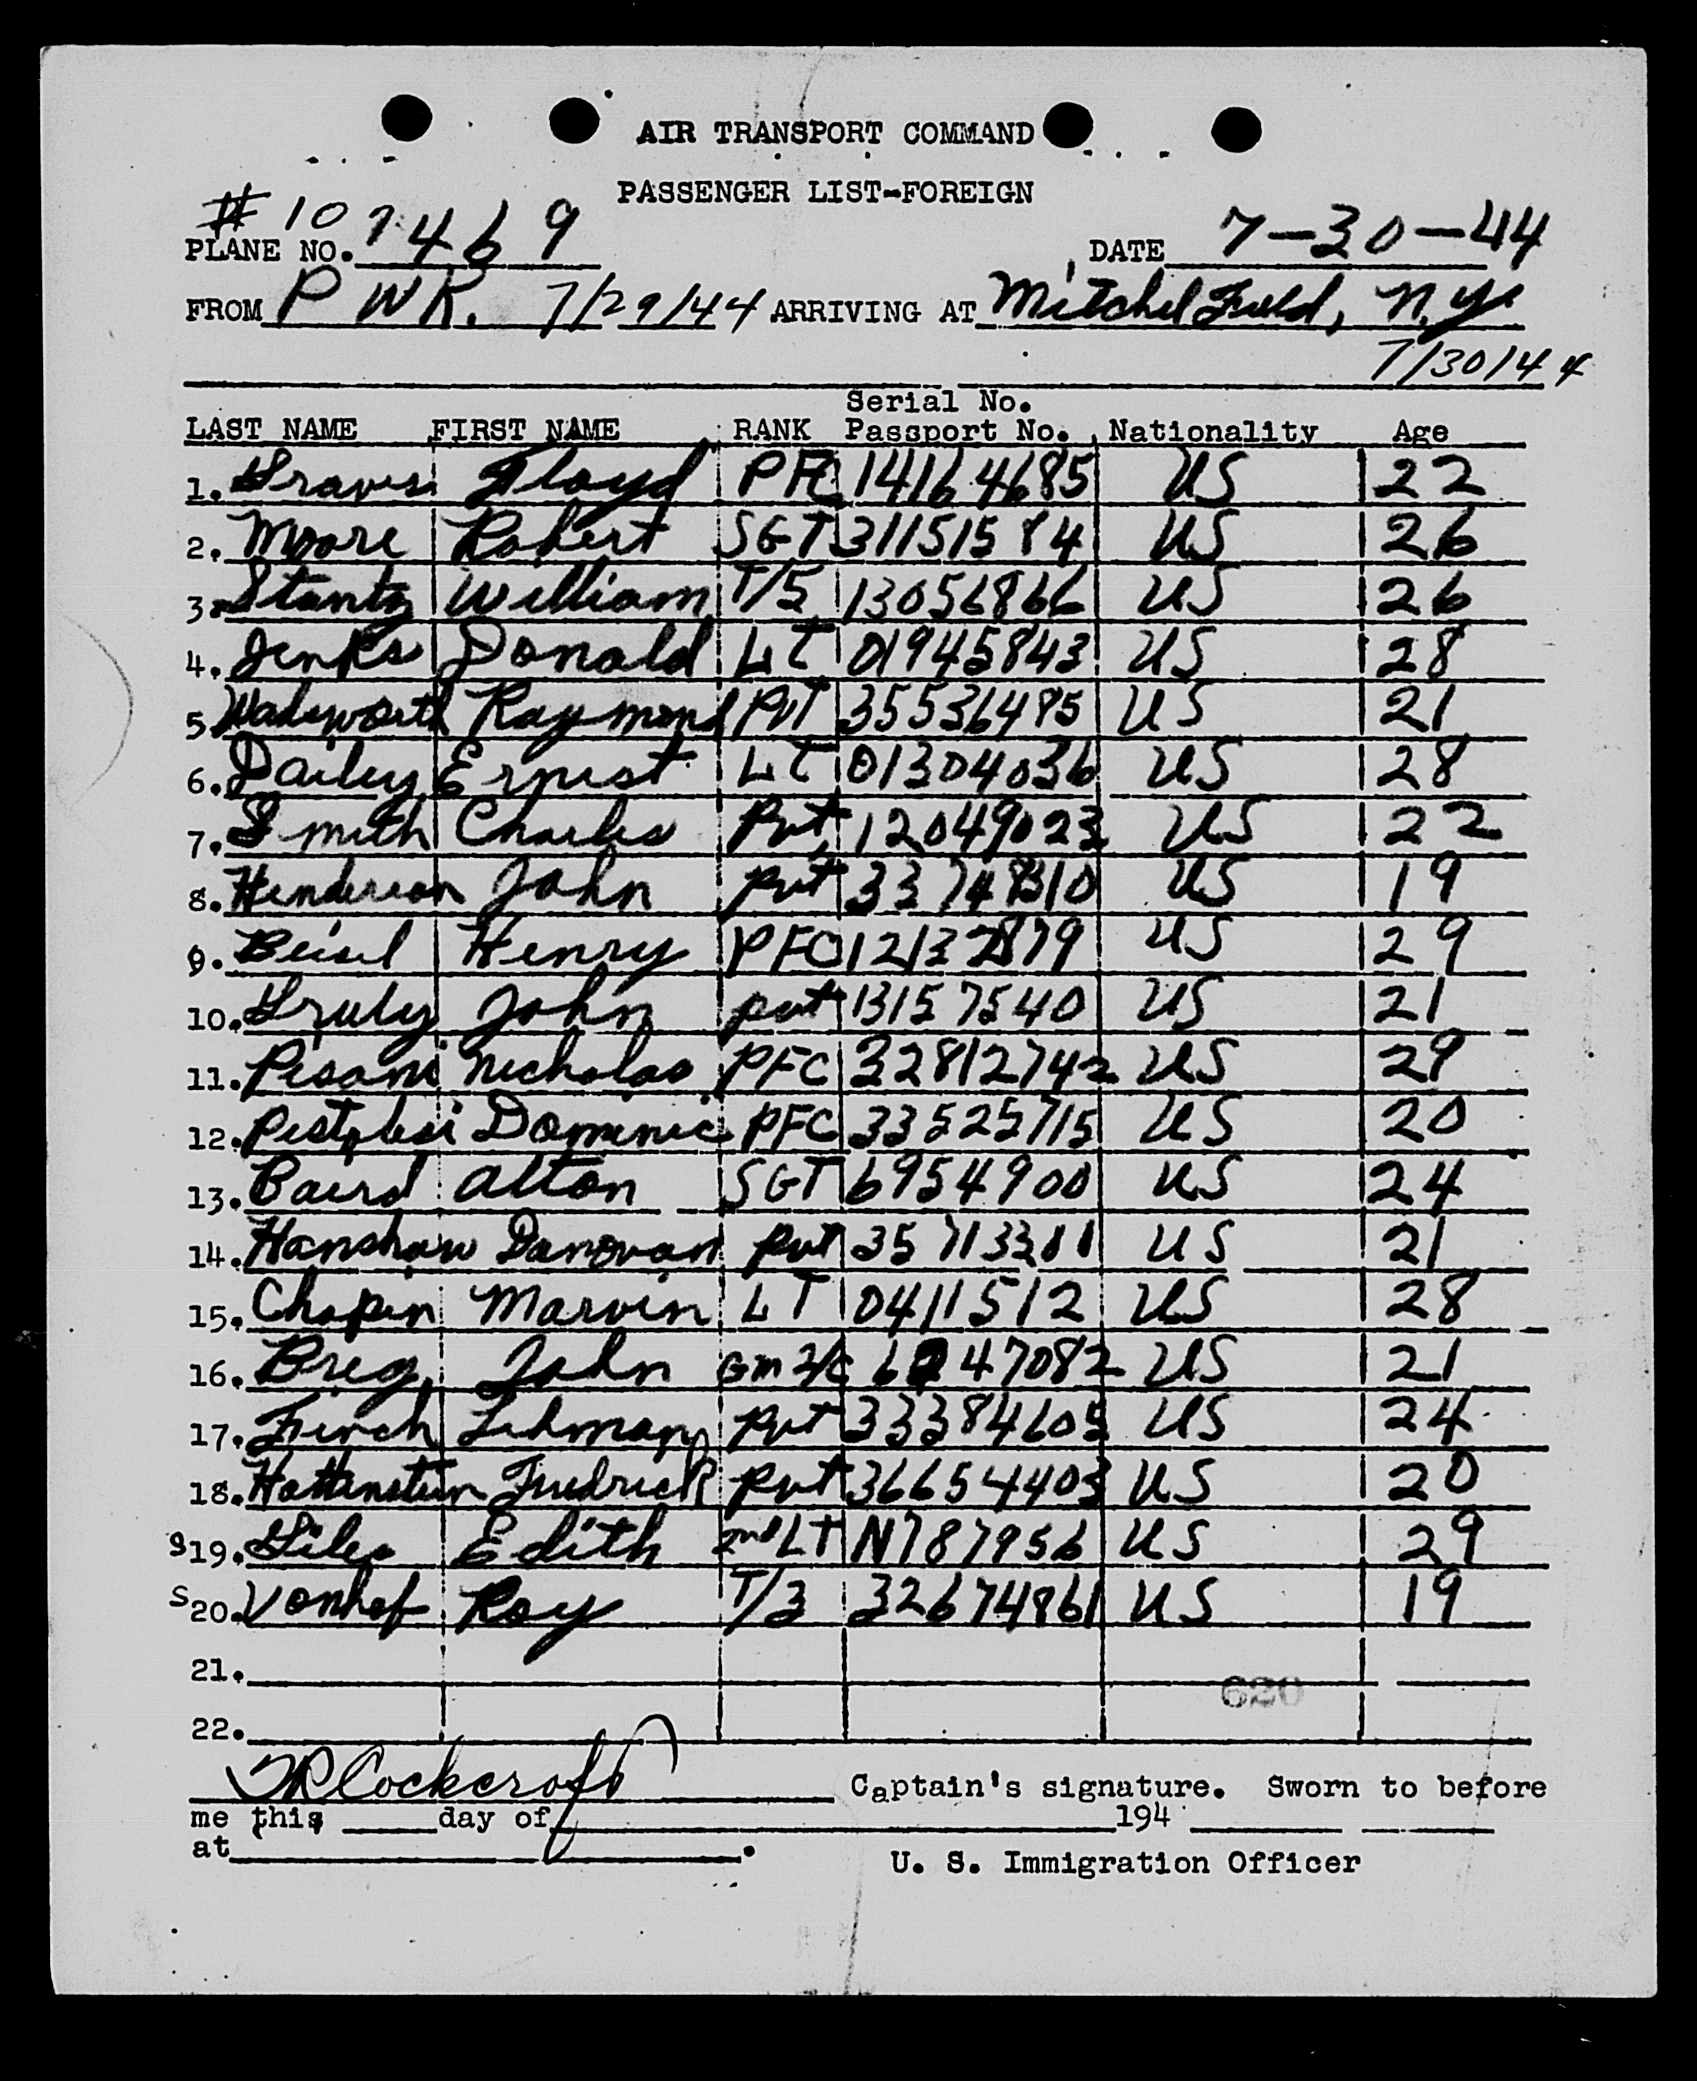 AIR TRANSPORT COMMAND
PASSENGER LIST-FOREIGN
# 107469
PLANE NO. DATE 7-30-44
FROM P W K. 7/29/44 ARRIVING AT Mitchel Field, N.Y.
7/30/44
Serial No.
LAST NAME FIRST NAME RANK Passport No. Nationality Age
1. Graves Floyd PFC 14164685 US 22
2. Moore Robert SGT 31151584 US 26
3. Stantz William T/5 13056866 US 26
4. Jenks Donald LT 01945843 US 28
5. Wadsworth Raymond Pvt 35536485 US 21
6. Dailey Ernest LT 01304036 US 28
7. Smith Charles Pvt 12049023 US 22
8. Henderson John Pvt 33748310 US 19
9. Beisel Henry PFC 12132879 US 29
10. Gruley John Pvt 13157540 US 21
11. Pisani Nicholas PFC 32812742 US 29
12. Pistolesi Dominic PFC 33525715 US 20
13. Baird Alton SGT 6954900 US 24
14. Hanshaw Donovan Pvt 35713311 US 21
15. Chapin Marvin LT 0411512 US 28
16. Breg John GM 2/c 6247082 US 21
17. Finch Lehman Pvt 33384605 US 24
18. Hottenstein Fredrick Pvt 36654403 US 20
S 19. Giles Edith 2nd LT N787956 US 29
S 20. Vonhof Roy T/3 32674861 US 19
21.
620
22.
Cockcroft Captain's signature. Sworn to before
me this day of 194
at .
U. S. Immigration Officer